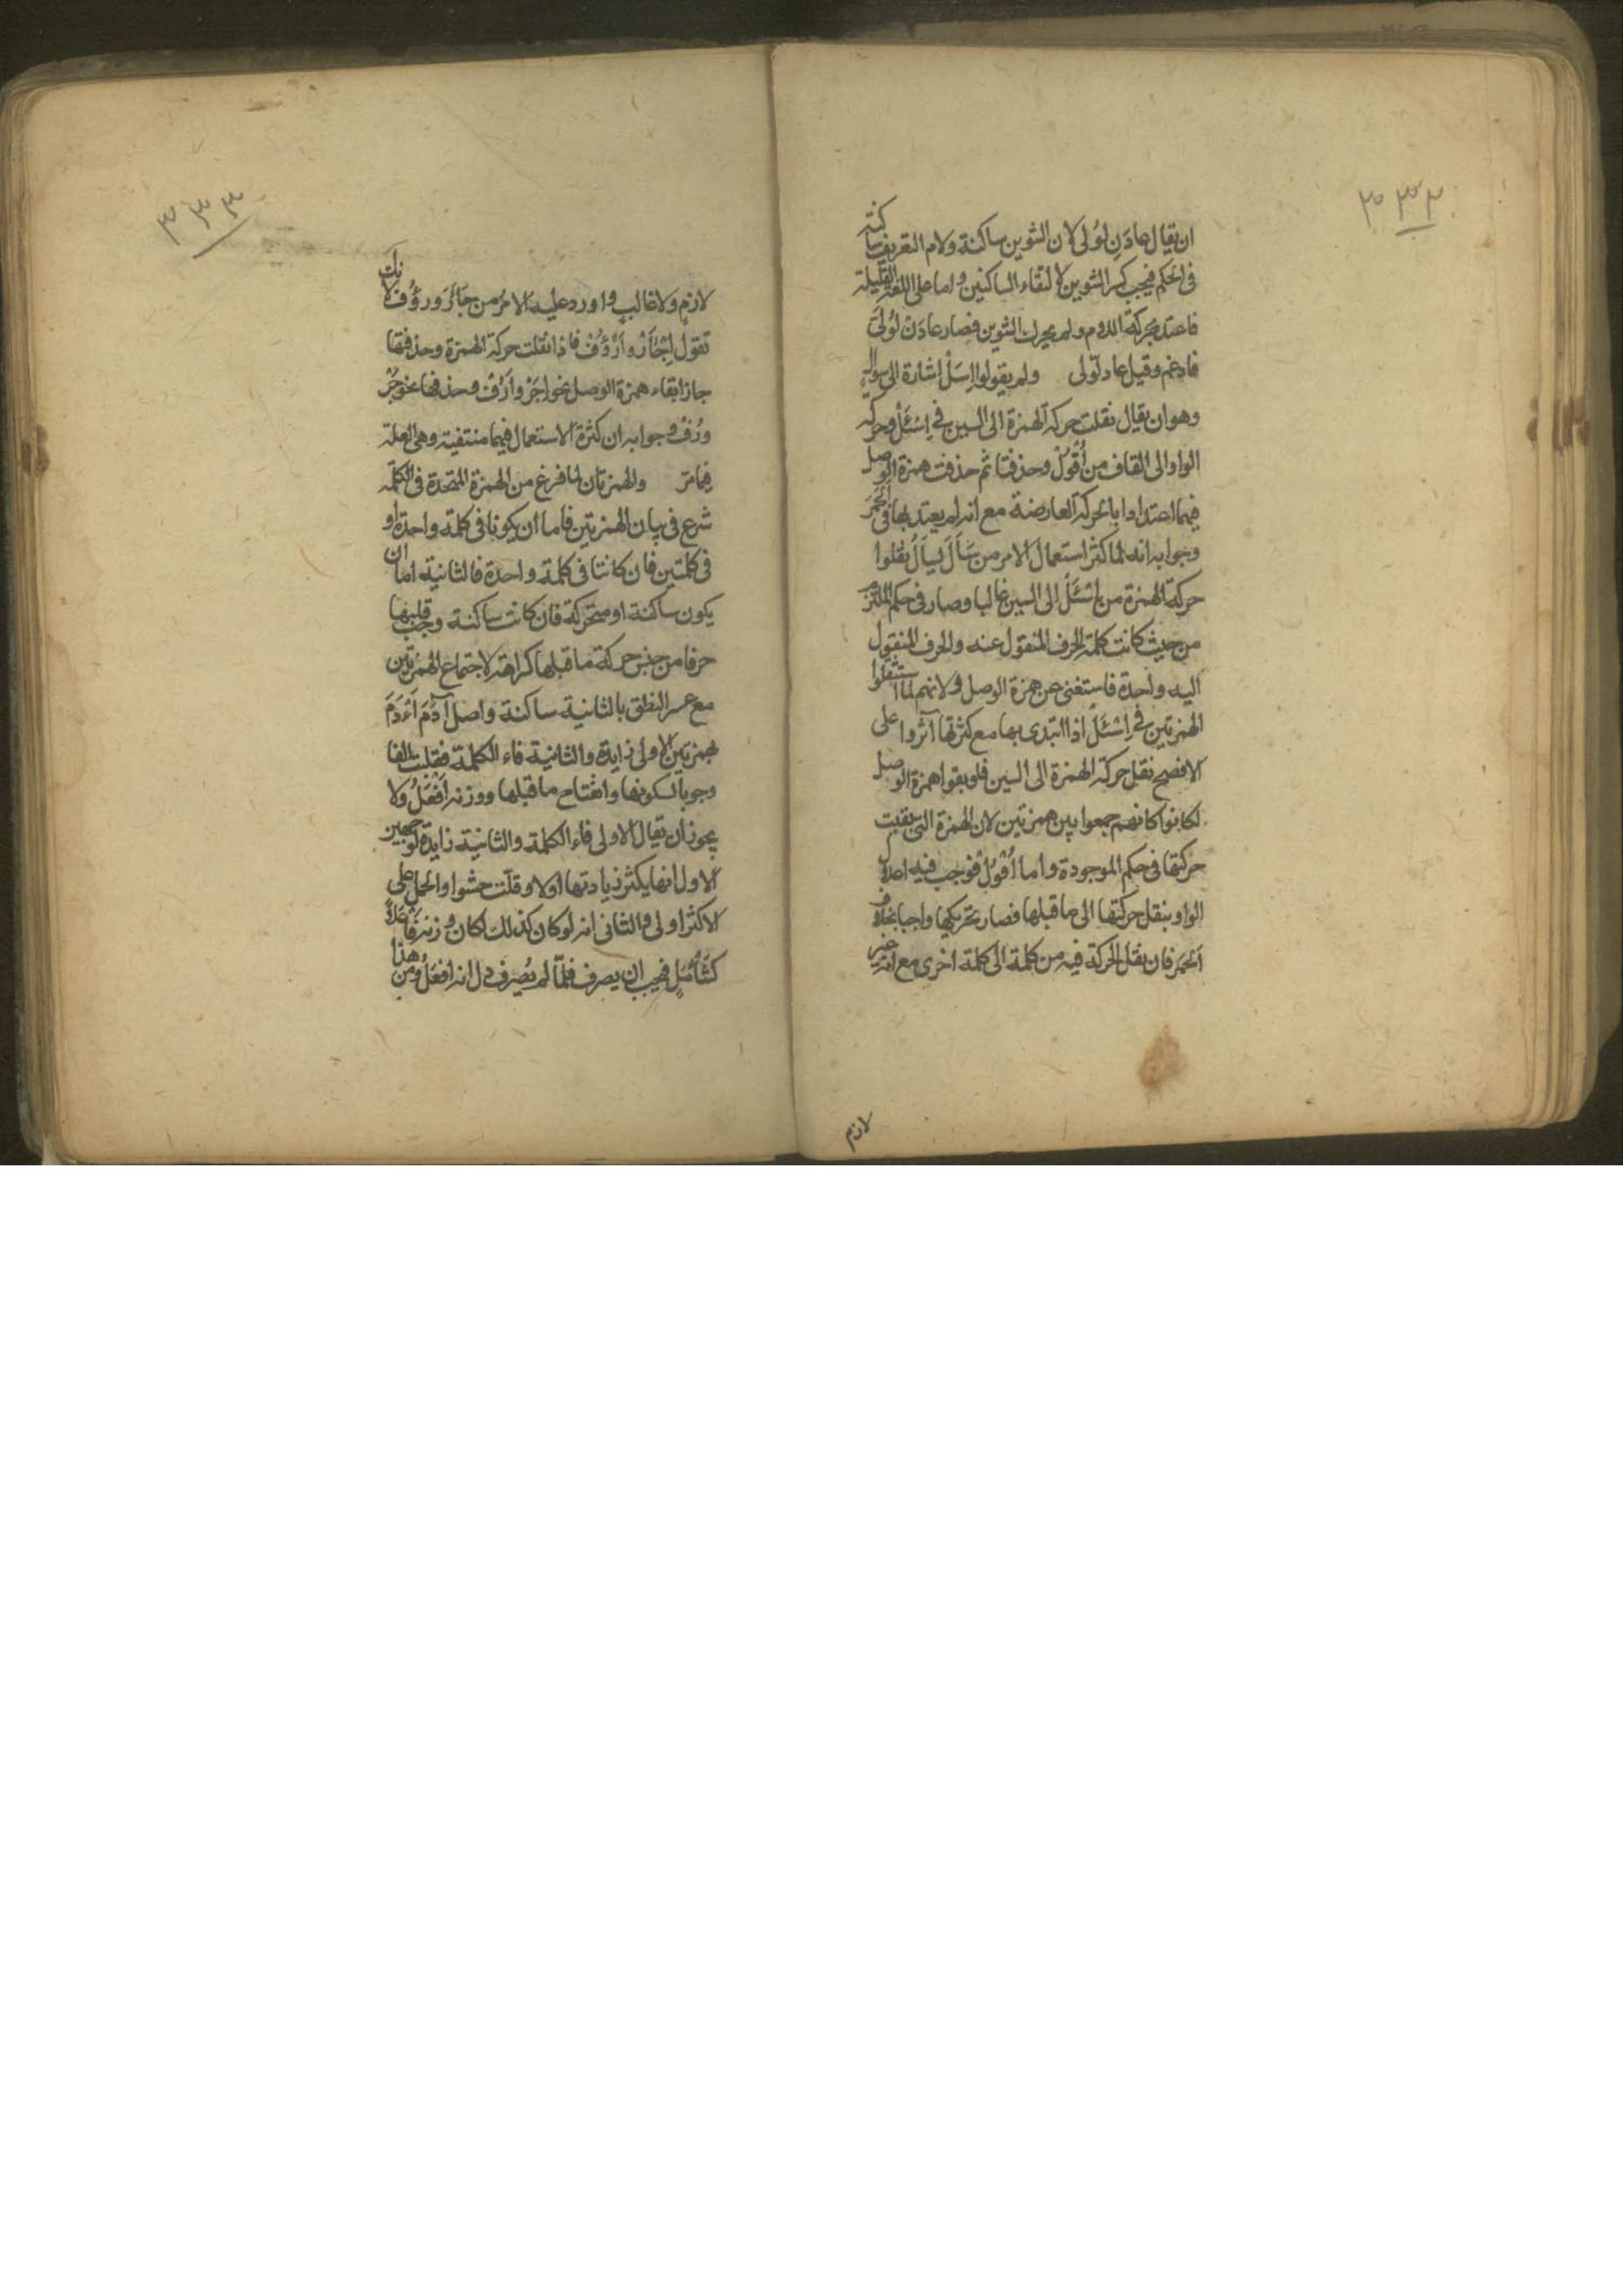 ٣٣٢
ان يقال عادَنِ لُولى لان التنوين ساكنة ولام التعريف ساكنة
فى الحكم فيجب كسر التنوين لالتقاء الساكنين واما على اللغة القليلة
فاعتد بحركة اللام ولم يحرك التنوين فصار عادَنْ لُولَى
فادغم وقيل عاد لّولى ولم يقولوا اِسَلْ اشارة الى سوال
وهو ان يقال نقلت حركة الهمزة الى السين فى اِسْئَلْ وحركة
الواو الى القاف من اُقْوُلْ وحذفتا ثم حذفت همزة الوصل
فيهما اعتدادا بالحركة العارضة مع انه لم يعتد بها فى اَلَحْمَر
وجوابه انه لما كثر استعمال الامر من سَأَلَ يسأَلُ نقلوا
حركة الهمزة من اِسْئَلْ الى السين غالبا وصار فى حكم الملتزم
من حيث كانت كلمة الحرف المنقول عنه والحرف المنقول
اليه واحدة فاستغنى عن همزة الوصل ولانهم لما استثقلوا
الهمزتين فى اِسْئَلْ اذا ابتدى بها مع كثرتها آثروا على
الافصح نقل حركة الهمزة الى السين فلو بقوا همزة الوصل
لكانوا كانهم جمعوا بين همزتين لان الهمزة التى بقيت
حركتها فى حكم الموجودة واما اُقْوُلْ فوجب فيه اعلال
الواو بنقل حركتها الى ما قبلها فصار تحريكها واجبا بخلاف
اَلَحْمَر فان نقل الحركة فيه من كلمة الى كلمة اخرى مع انه غير
لازم
٣٣٣
لازم ولا غالب واورد عليه الامر من جَأَرَ ورَؤُف لانك
تقول اِجْأَرْ واُرْؤُفْ فاذا نقلت حركة الهمزة وحذفتها
جاز ابقاء همزة الوصل نحو اِجَرْ واُرُفْ وحذفها نحو جَرْ
ورُفْ وجوابه ان كثرة الاستعمال فيهما منتفية وهى العلة
فيما مر والهمزتان لما فرغ من الهمزة المتحدة فى الكلمة
شرع فى بيان الهمزتين فاما ان يكونا فى كلمة واحدة او
فى كلمتين فان كانتا فى كلمة واحدة فالثانية اما ان
يكون ساكنة او متحركة فان كانت ساكنة وجب قلبها
حرفا من جنس حركة ما قبلها كراهة لاجتماع الهمزتين
مع عسر النطق بالثانية ساكنة واصل آدَمَ أَءْدَمَ
بهمزتين الاولى زايدة والثانية فاء الكلمة فقلبت الفا
وجوبا لسكونها وانفتاح ما قبلها ووزنه اَفْعَلُ ولا
يجوز ان يقال الاولى فاء الكلمة والثانية زايدة لوجهين
الاول انها يكثر زيادتها اولا وقلّت حشوا والحمل على
الاكثر اولى والثانى انه لو كان كذلك لكان وزنه فَاعَلاً
كشَأْمَلٍ فيجب ان يصرف فلمّا لم يُصرف دل انه افعلُ ومن هذا